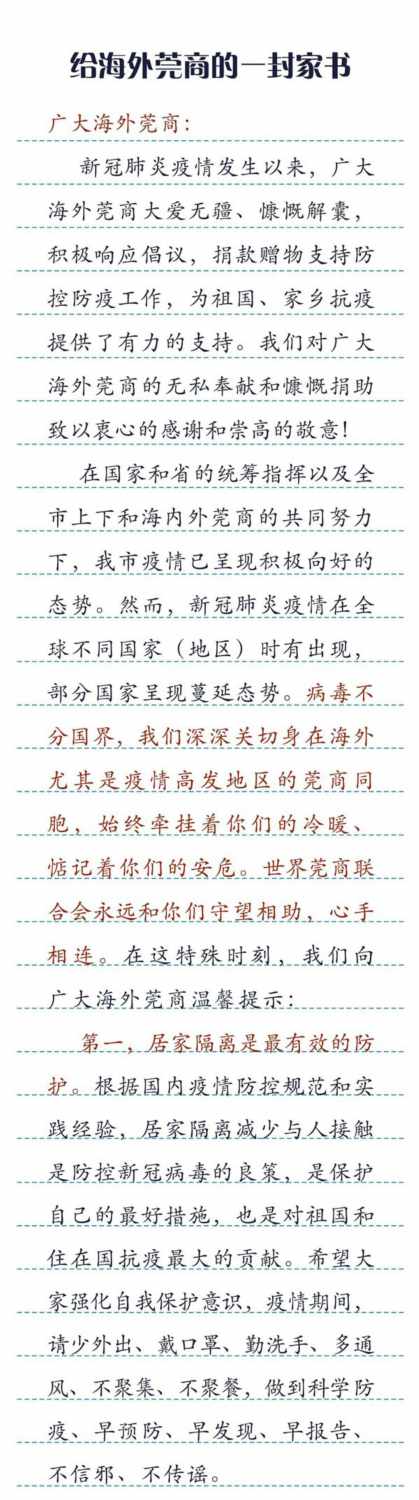 给海外莞商的一封家书
广大海外莞商：
新冠肺炎疫情发生以来，广大
海外莞商大爱无疆、慷慨解囊，
积极响应倡议，捐款赠物支持防
控防疫工作，为祖国、家乡抗疫
提供了有力的支持。我们对广大
海外莞商的无私奉献和慷慨捐助
致以衷心的感谢和崇高的敬意！
在国家和省的统筹指挥以及全
市上下和海内外莞商的共同努力
下，我市疫情已呈现积极向好的
态势。然而，新冠肺炎疫情在全
球不同国家（地区）时有出现，
部分国家呈现蔓延态势。病毒不
分国界，我们深深关切身在海外
尤其是疫情高发地区的莞商同
胞，始终牵挂着你们的冷暖、
惦记着你们的安危。世界莞商联
合会永远和你们守望相助，心手
相连。在这特殊时刻，我们向
广大海外莞商温馨提示：
第一，居家隔离是最有效的防
护。根据国内疫情防控规范和实
践经验，居家隔离减少与人接触
是防控新冠病毒的良策，是保护
自己的最好措施，也是对祖国和
住在国抗疫最大的贡献。希望大
家强化自我保护意识，疫情期间，
请少外出、戴口罩、勤洗手、多通
风、不聚集、不聚餐，做到科学防
疫、早预防、早发现、早报告、
不信邪、不传谣。